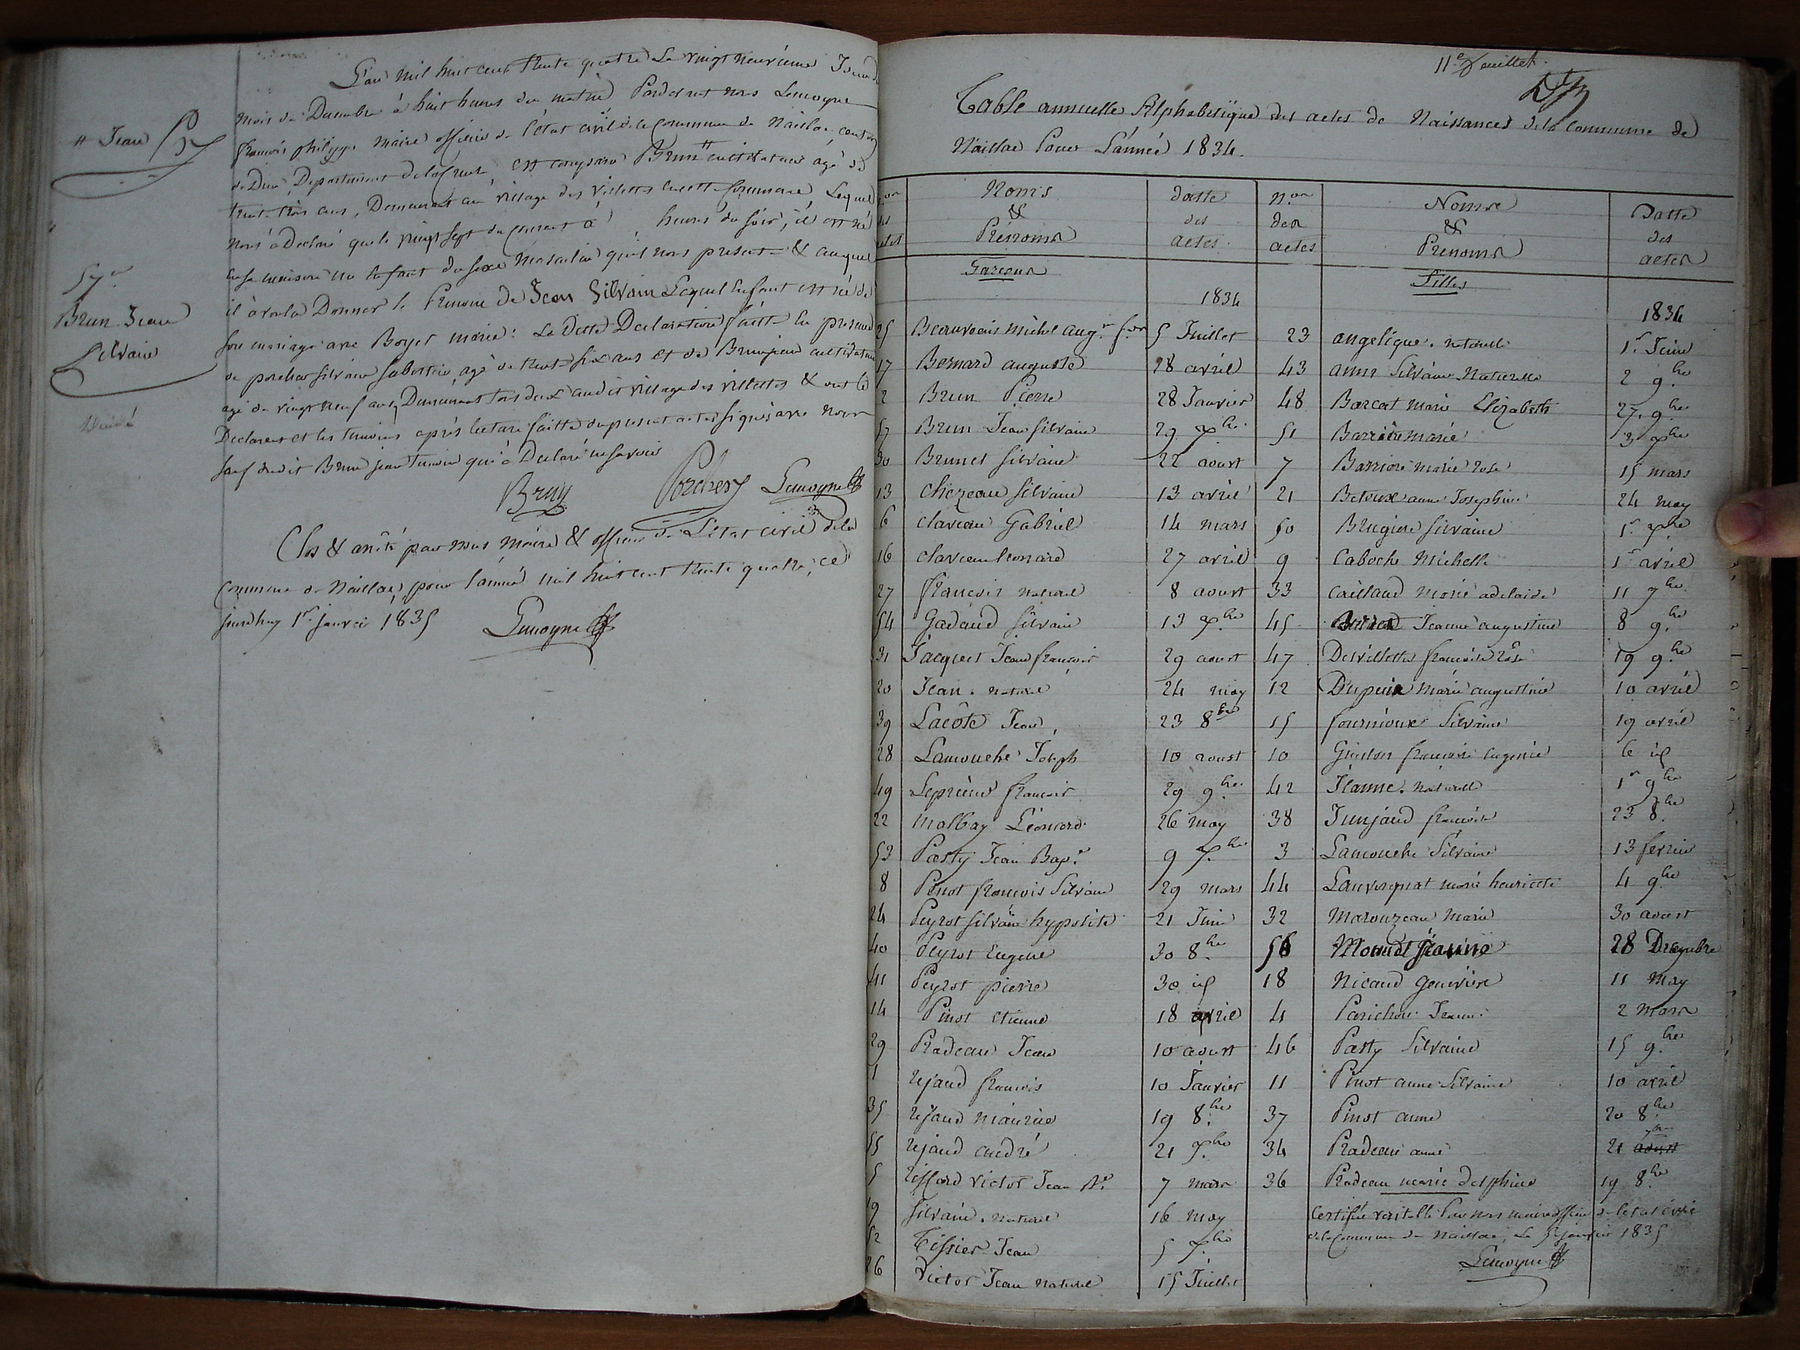 L'an mil huit cent trente quatre Le vingt neuvieme Jour du
mois de Decembre à huit heures du matin Pardevant nous Lemoyne
françois philippe maire officier de l'état civil de la Commune de Naillac canton
de Dun, Département de la Creuse, est comparu Brun cultivateur agé de
trente trois ans, Demeurant au village des villettes en cette Commune Lequel
nous à Declaré que le vingt sept du Courant à heures du soir, il est né
en sa maison un Enfant du sexe Masculin qu'il nous présente & auquel
il à voulu Donner le Prenom de Jean Silvain Lequel Enfant est né de
son mariage avec Boyer marie: La Dette Declaration faitte en presence
de porcher silvain sabottier, agé de trente six ans et de Brun jean cultivateur
agé de vingt neuf ans, Demeurant tous deux audit village des villettes & ont le
Declarant et les temoins après lecture faitte du present acte signé avec nous
sauf dudit Brun jean Temoin qui à Declaré ne savoir
Brun Porcher Lemoyne
Clos & arrêté par nous maire & officier de L'état civil de la
Commune de Naillac, pour l'année mil huit cent trente quatre, ce
jourdhuy 1er janvier 1835
Lemoyne
" Jean
57
Brun Jean
Silvain
11e feuillet
Table annuelle Alphabétique des actes de Naissances de la Commune de
Naillac Pour L'année 1834.
Noms & Prenoms datte des actes nos des actes Noms & Prenoms Datte des actes
Garçons Filles
1834 1834
25 Beauvais Michel Aug. fois 5 Juillet 23 angélique. naturelle 1er Juin
17 Bernard auguste 28 avril 43 anne Silvaine Naturelle 2 9bre
2 Brun Pierre 28 Janvier 48 Barcat marie Elizabeth 27 9bre
57 Brun Jean Silvain 29 Xbre 51 Barriere marie 3 Xbre
30 Brunet Silvain 22 aoust 7 Barriere marie rose 15 mars
13 chezeau Silvain 13 avril 21 Betoux anne Josephine 24 may
6 claveau Gabriel 14 mars 50 Brugiere Silvaine 1er Xbre
16 claveau leonard 27 avril 9 Caboche Michelle 1er avril
27 françois naturel 8 aoust 33 caillaud marie adelaide 11 7bre
54 Gadaud Silvain 13 Xbre 45 Jeanne augustine 8 9bre
31 Jacquet Jean françois 29 aoust 47 Desvillettes françoise Rose 19 9bre
20 Jean. naturel 24 may 12 Dupuis Marie augustine 10 avril
39 Lacôte Jean 23 8bre 15 fournioux Silvaine 19 avril
28 Lamouche Joseph 10 aoust 10 Guidon françoise Eugenie 6 id
49 Leprieur françois 29 9bre 42 Jeanne. naturelle 1er 9bre
22 malbay Léonard 26 may 38 Junjaud françoise 23 8bre
53 Pasty Jean Bapte 9 Xbre 3 Lamouche Silvaine 13 fevrier
8 Penot françois Silvain 29 mars 44 Lauvergnat marie henriette 4 9bre
24 Peyrot silvain hyppolite 21 Juin 32 Marouzeau Marie 30 aoust
40 Peyrot Eugene 30 8bre 56 Jeanne 28 Decembre
41 Peyrot pierre 30 id 18 Nicaud Genevieve 11 May
14 Pinot Etienne 18 avril 4 Parichon Jeanne 2 Mars
29 Pradeau Jean 10 aoust 46 Pasty Silvaine 15 9bre
1 rejaud françois 10 Janvier 11 Pinot anne Silvaine 10 avril
35 rejaud Maurice 19 8bre 37 Pinot anne 20 8bre
55 rejaud andré 21 Xbre 34 Pradeau anne 21 aoust
5 Riffard victor Jean Bte 7 mars 36 Pradeau marie Delphine 19 8bre
19 Silvain. naturel 16 may Certifié veritable Par nous maire officier de l'etat civil
52 Tissier Jean 5 Xbre de la Commune de Naillac, Le 5 janvier 1835
26 Victor Jean naturel 15 Juillet Lemoyne